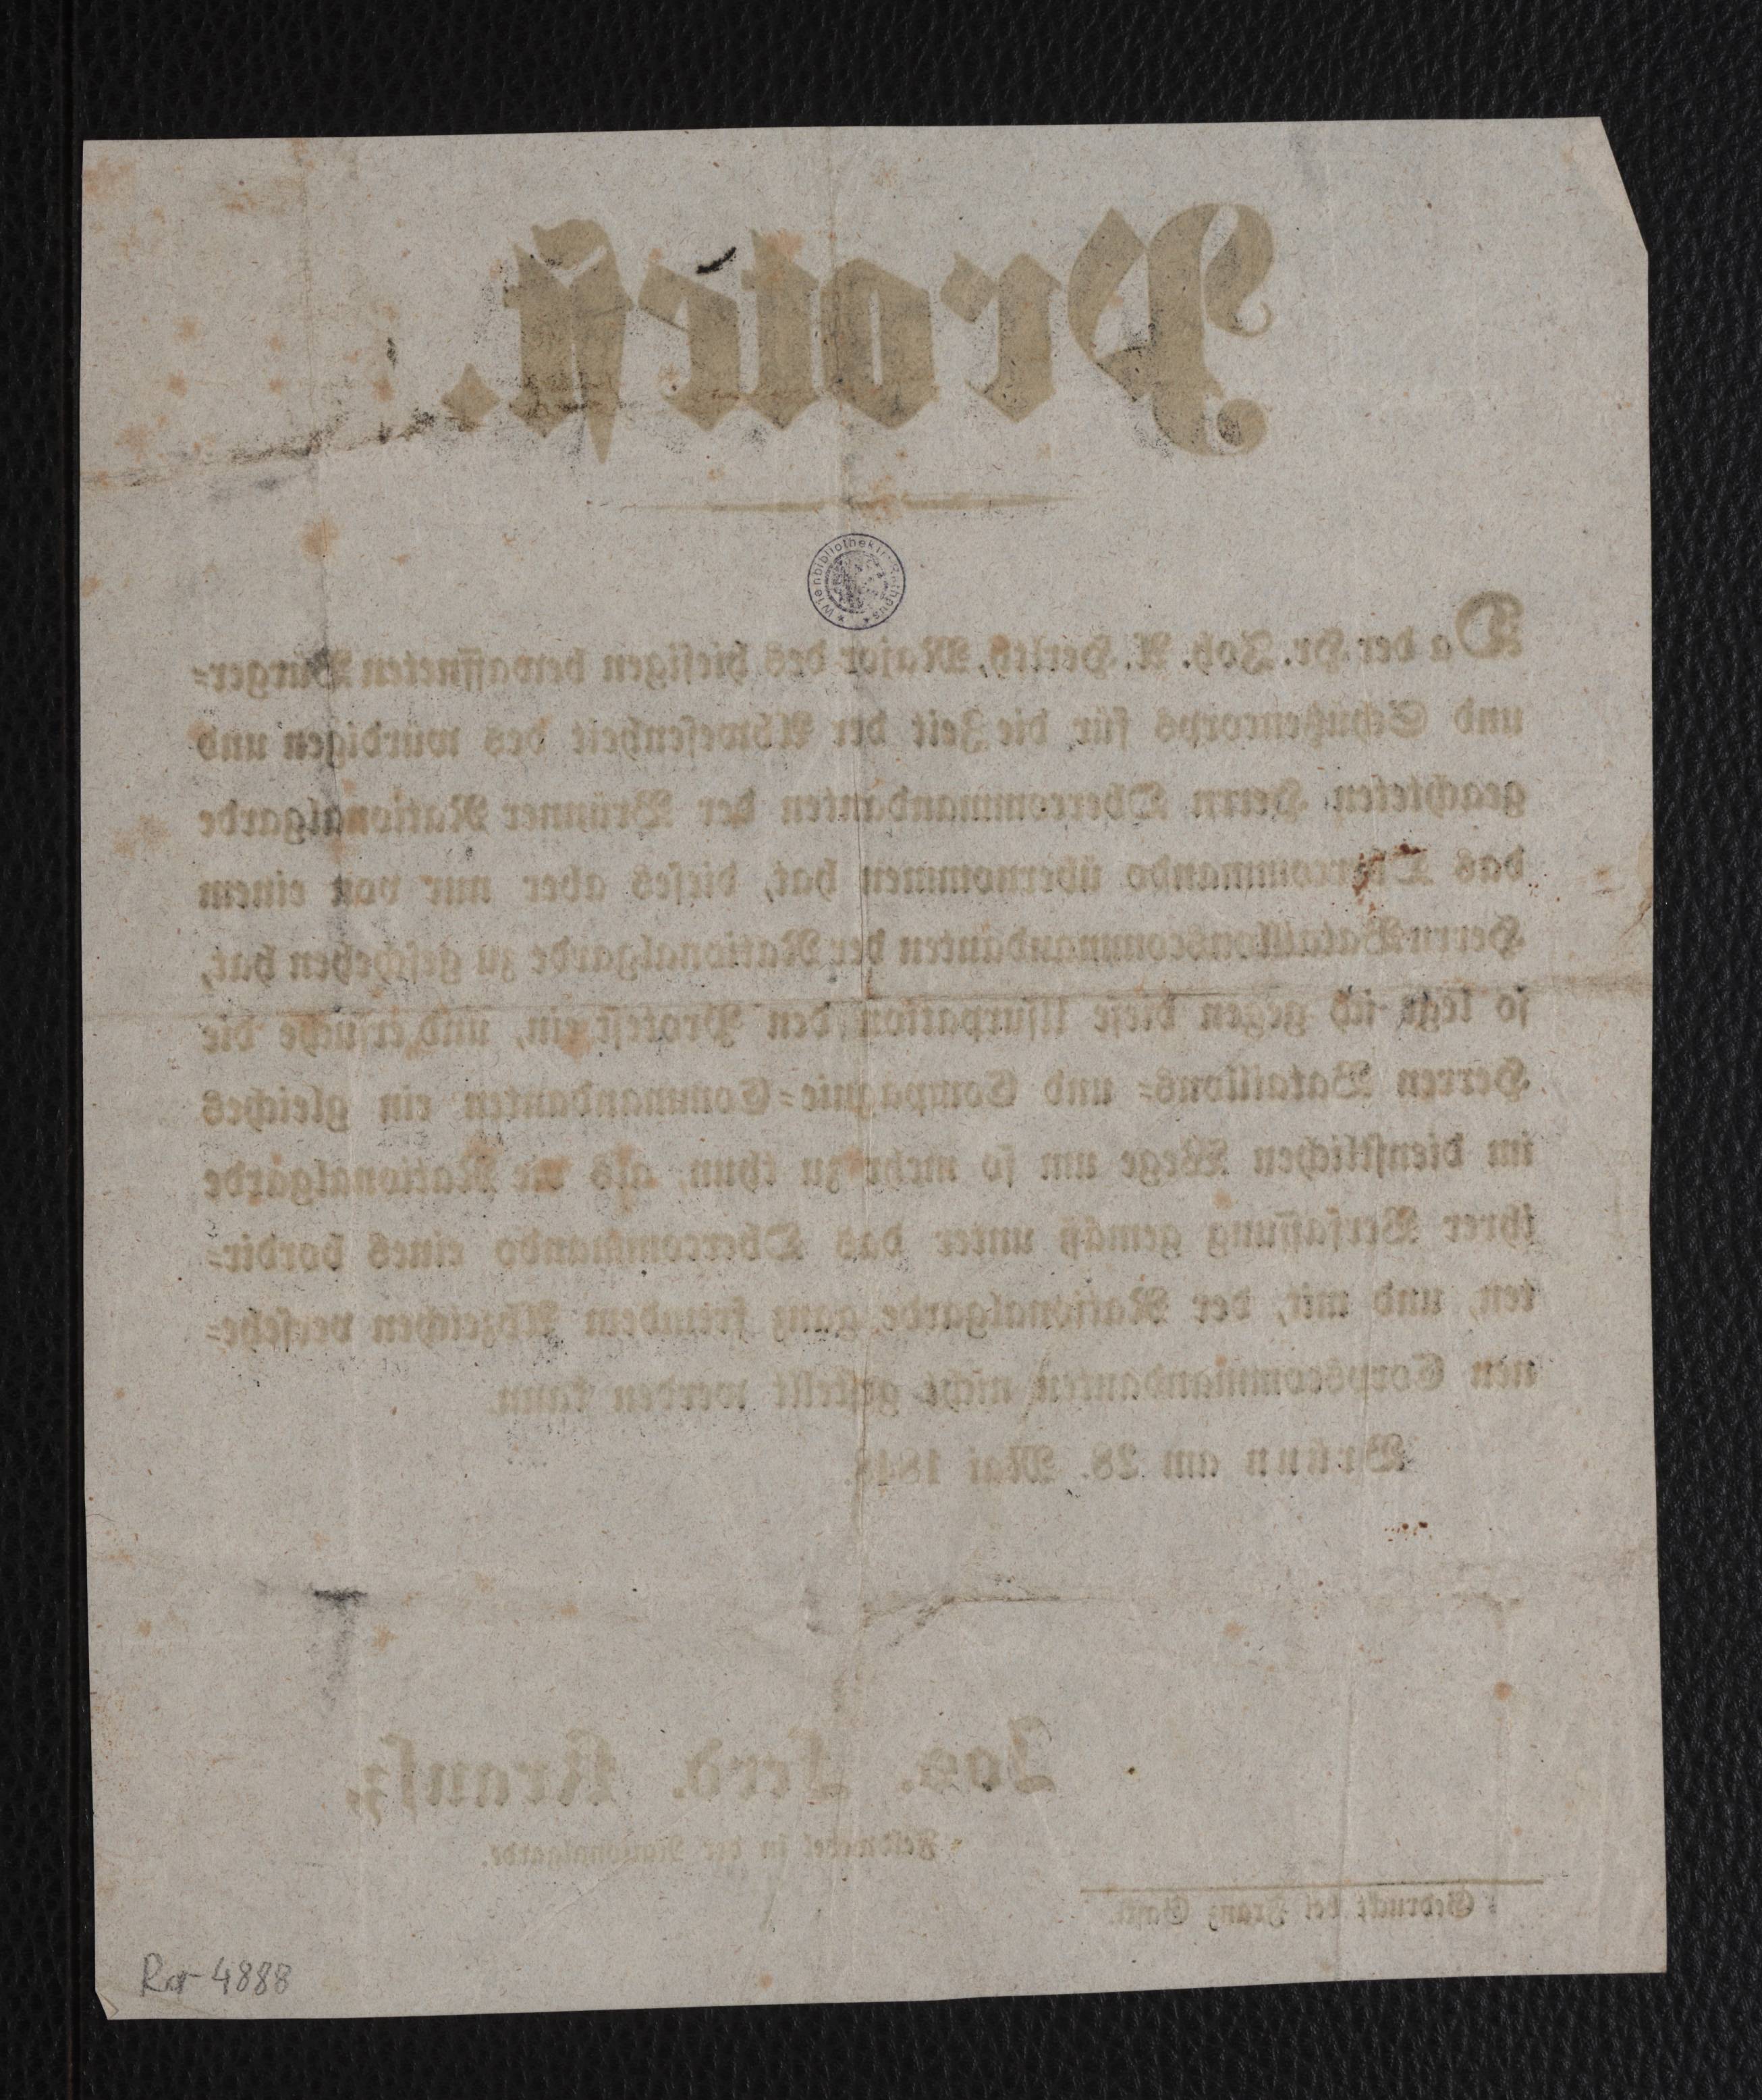 Protest.
Wienbibliothek i. Rathaus
Da der Hr. Joh. A. Herlth, Major des hiesigen bewaffneten Bürger=
und Schützencorps für die Zeit der Abwesenheit des würdigen und
geachteten Herrn Obercommandanten der Brünner Nationalgarde
das Obercommando übernommen hat, dieses aber nur von einem
Herrn Bataillonscommandanten der Nationalgarde zu geschehen hat,
so lege ich gegen diese Usurpation den Protest ein, und ersuche die
Herren Bataillons= und Compagnie=Commandanten ein gleiches
im dienstlichen Wege um so mehr zu thun, als die Nationalgarde
ihrer Verfassung gemäß unter das Obercommando eines bordir=
ten, und mit, der Nationalgarde ganz fremdem Abzeichen versehe=
nen Corpscommandanten nicht gestellt werden kann.
Brünn am 28. Mai 1848.
Jos. Ferd. Krausz,
Feldwebel in der Nationalgarde.
Gedruckt bei Franz Gastl.
Rar 4888